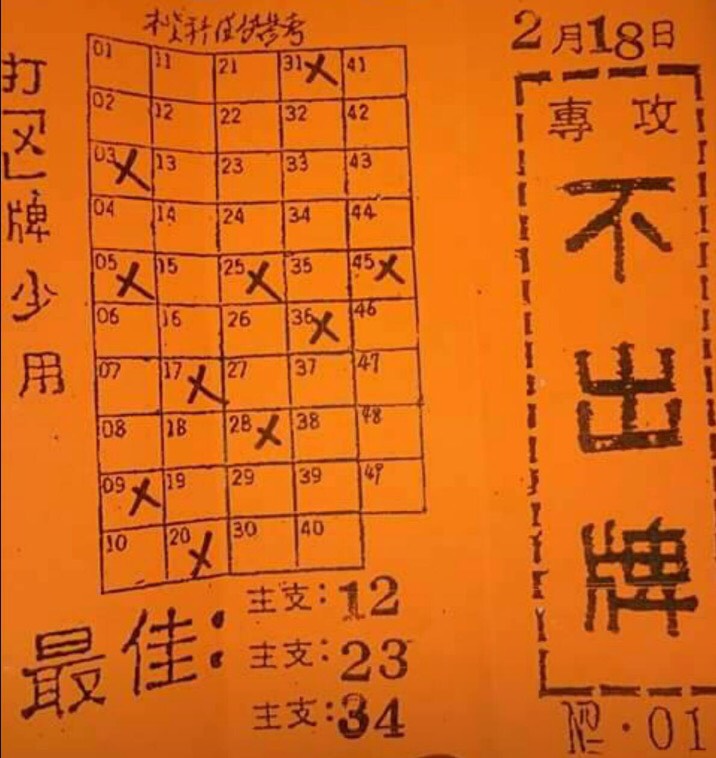 2月18日
專攻
不出牌
№·01
打「X」牌少用
01 11 21 31X 41
02 12 22 32 42
03X 13 23 33 43
04 14 24 34 44
05X 15 25X 35 45X
06 16 26 36X 46
07 17X 27 37 47
08 18 28X 38 48
09X 19 29 39 49
10 20X 30 40
最佳:
主支:12
主支:23
主支:34